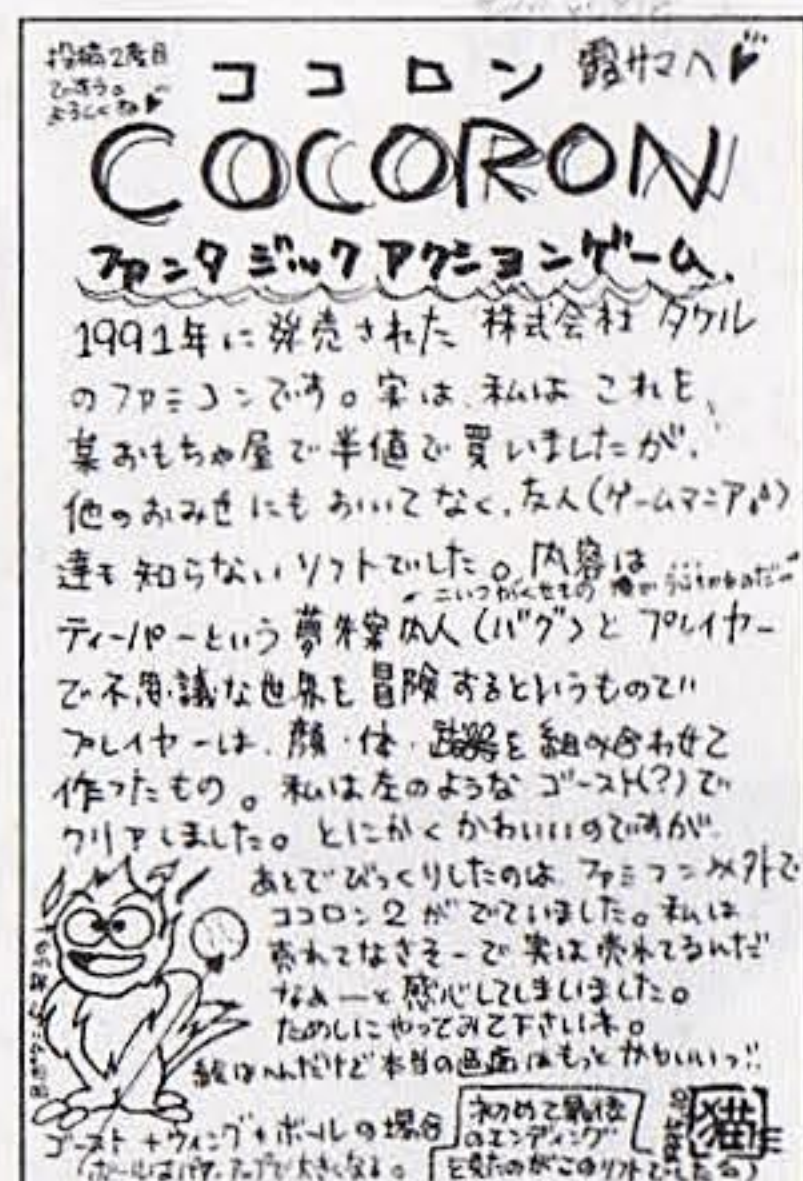 投稿2度目
ですう。
よろしくね
ココロン
霞サマへ
COCORON
ファンタジックアクションゲーム.
1991年に発売された 株式会社 タケル
のファミコンです。実は、私は これを、
某おもちゃ屋で半値で買いましたが、
他のおみせにもおいてなく、友人(ゲームマニア)
達も知らないソフトでした。内容は
こいつがくせもの
ティーパーという夢先案内人(バグ)とプレイヤー
で不思議な世界を冒険するというもので
プレイヤーは、顔・体・武器を組み合わせて
作ったもの。私は左のようなゴースト(?)で
クリアしました。とにかくかわいいのですが
あとでびっくりしたのは、ファミコン以外で
ココロン2がでていました。私は
売れてなさそーで実は売れてるんだ
なぁーと感心してしまいました。
ためしにやってみて下さいネ。
絵はへんだけど本当の画面はもっとかわいいっ!!
ゴースト+ウィング+ボールの場合
(ボールはパワーアップで大きくなる。
初めて最後
のエンディング
を見たのがこのソフトでした
猫